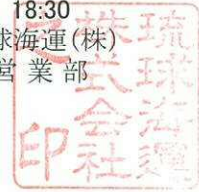 18:30
球海運(株)
営業部
琉球海運
株式会社
之印